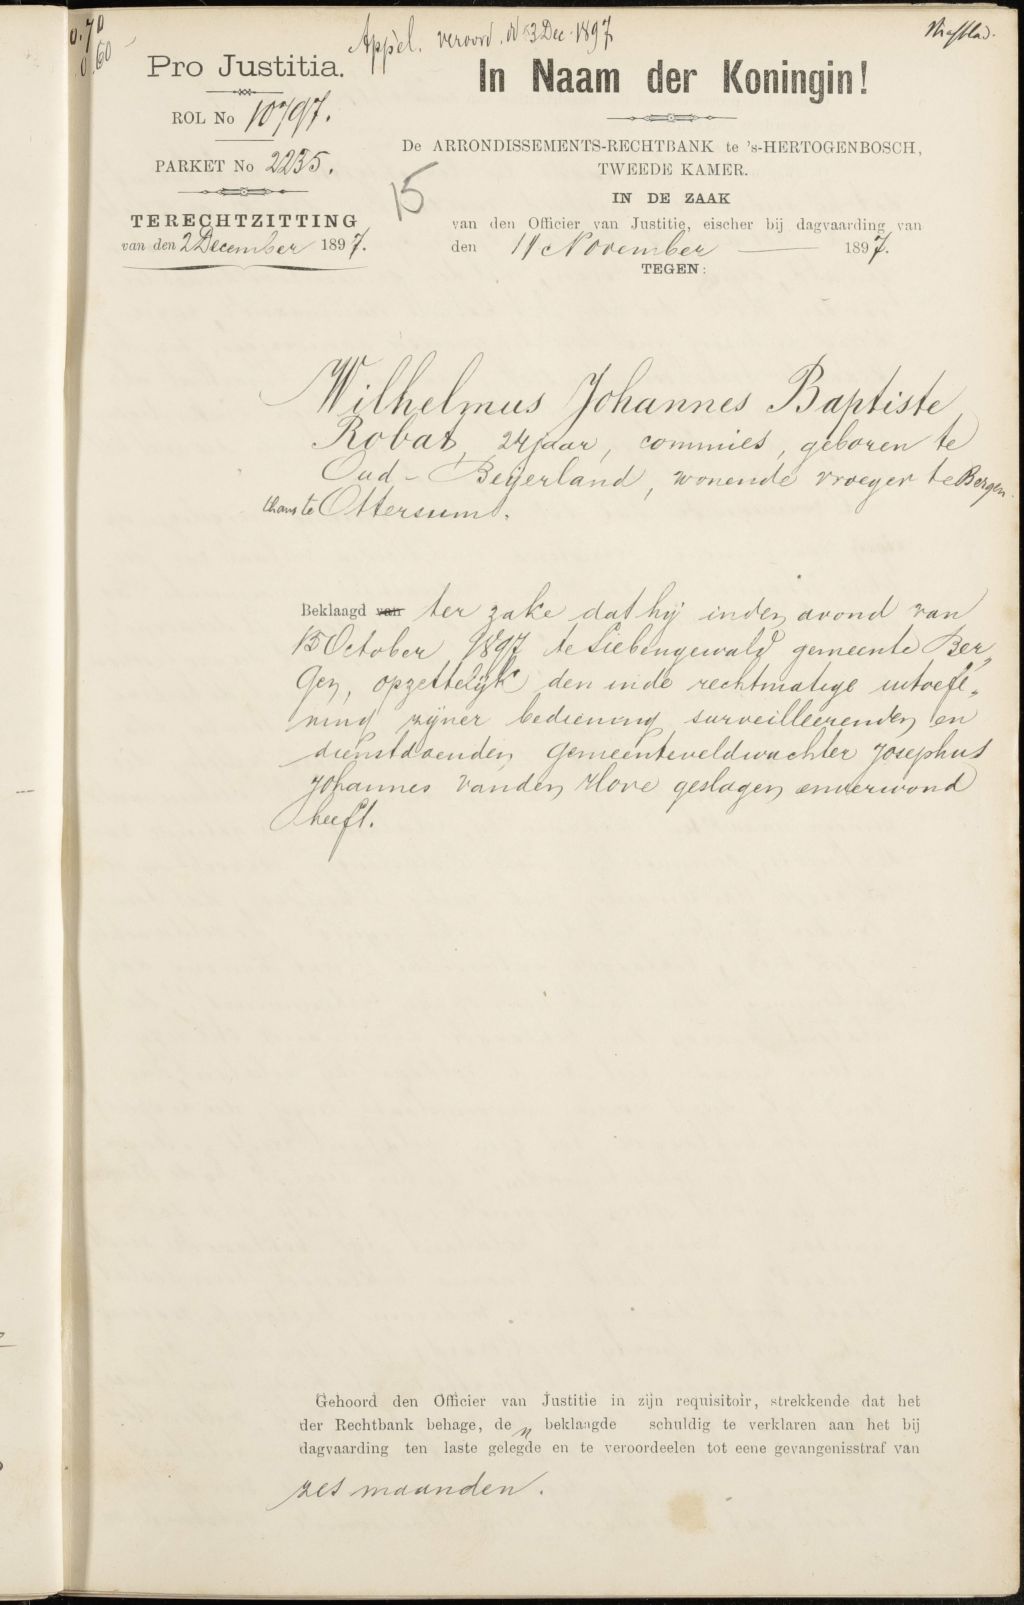 0.70
0.60
Appèl. veroord. dd 13 Dec. 1897
Strafblad.
Pro Justitia.
ROL No 10797.
PARKET No 2235.
TERECHTZITTING
van den 2 December 1897.
In Naam der Koningin!
De ARRONDISSEMENTS-RECHTBANK te 's-HERTOGENBOSCH,
TWEEDE KAMER.
15
IN DE ZAAK
van den Officier van Justitie, eischer bij dagvaarding van
den 11 November 1897.
TEGEN:
Wilhelmus Johannes Baptiste
Robat, 24 jaar, commies, geboren te
Oud-Beijerland, wonende vroeger te Bergen
thans te Ottersum.
Beklaagd van ter zake dat hij in den avond van
15 October 1897 te Siebengewald gemeente Ber„
gen, opzettelijk den in de rechtmatige uitoefe„
ning zijner bediening surveilleerenden en
dienstdoenden gemeenteveldwachter Josephus
Johannes van den Hove geslagen en verwond
heeft.
Gehoord den Officier van Justitie in zijn requisitoir, strekkende dat het
der Rechtbank behage, den beklaagde schuldig te verklaren aan het bij
dagvaarding ten laste gelegde en te veroordeelen tot eene gevangenisstraf van
zes maanden.